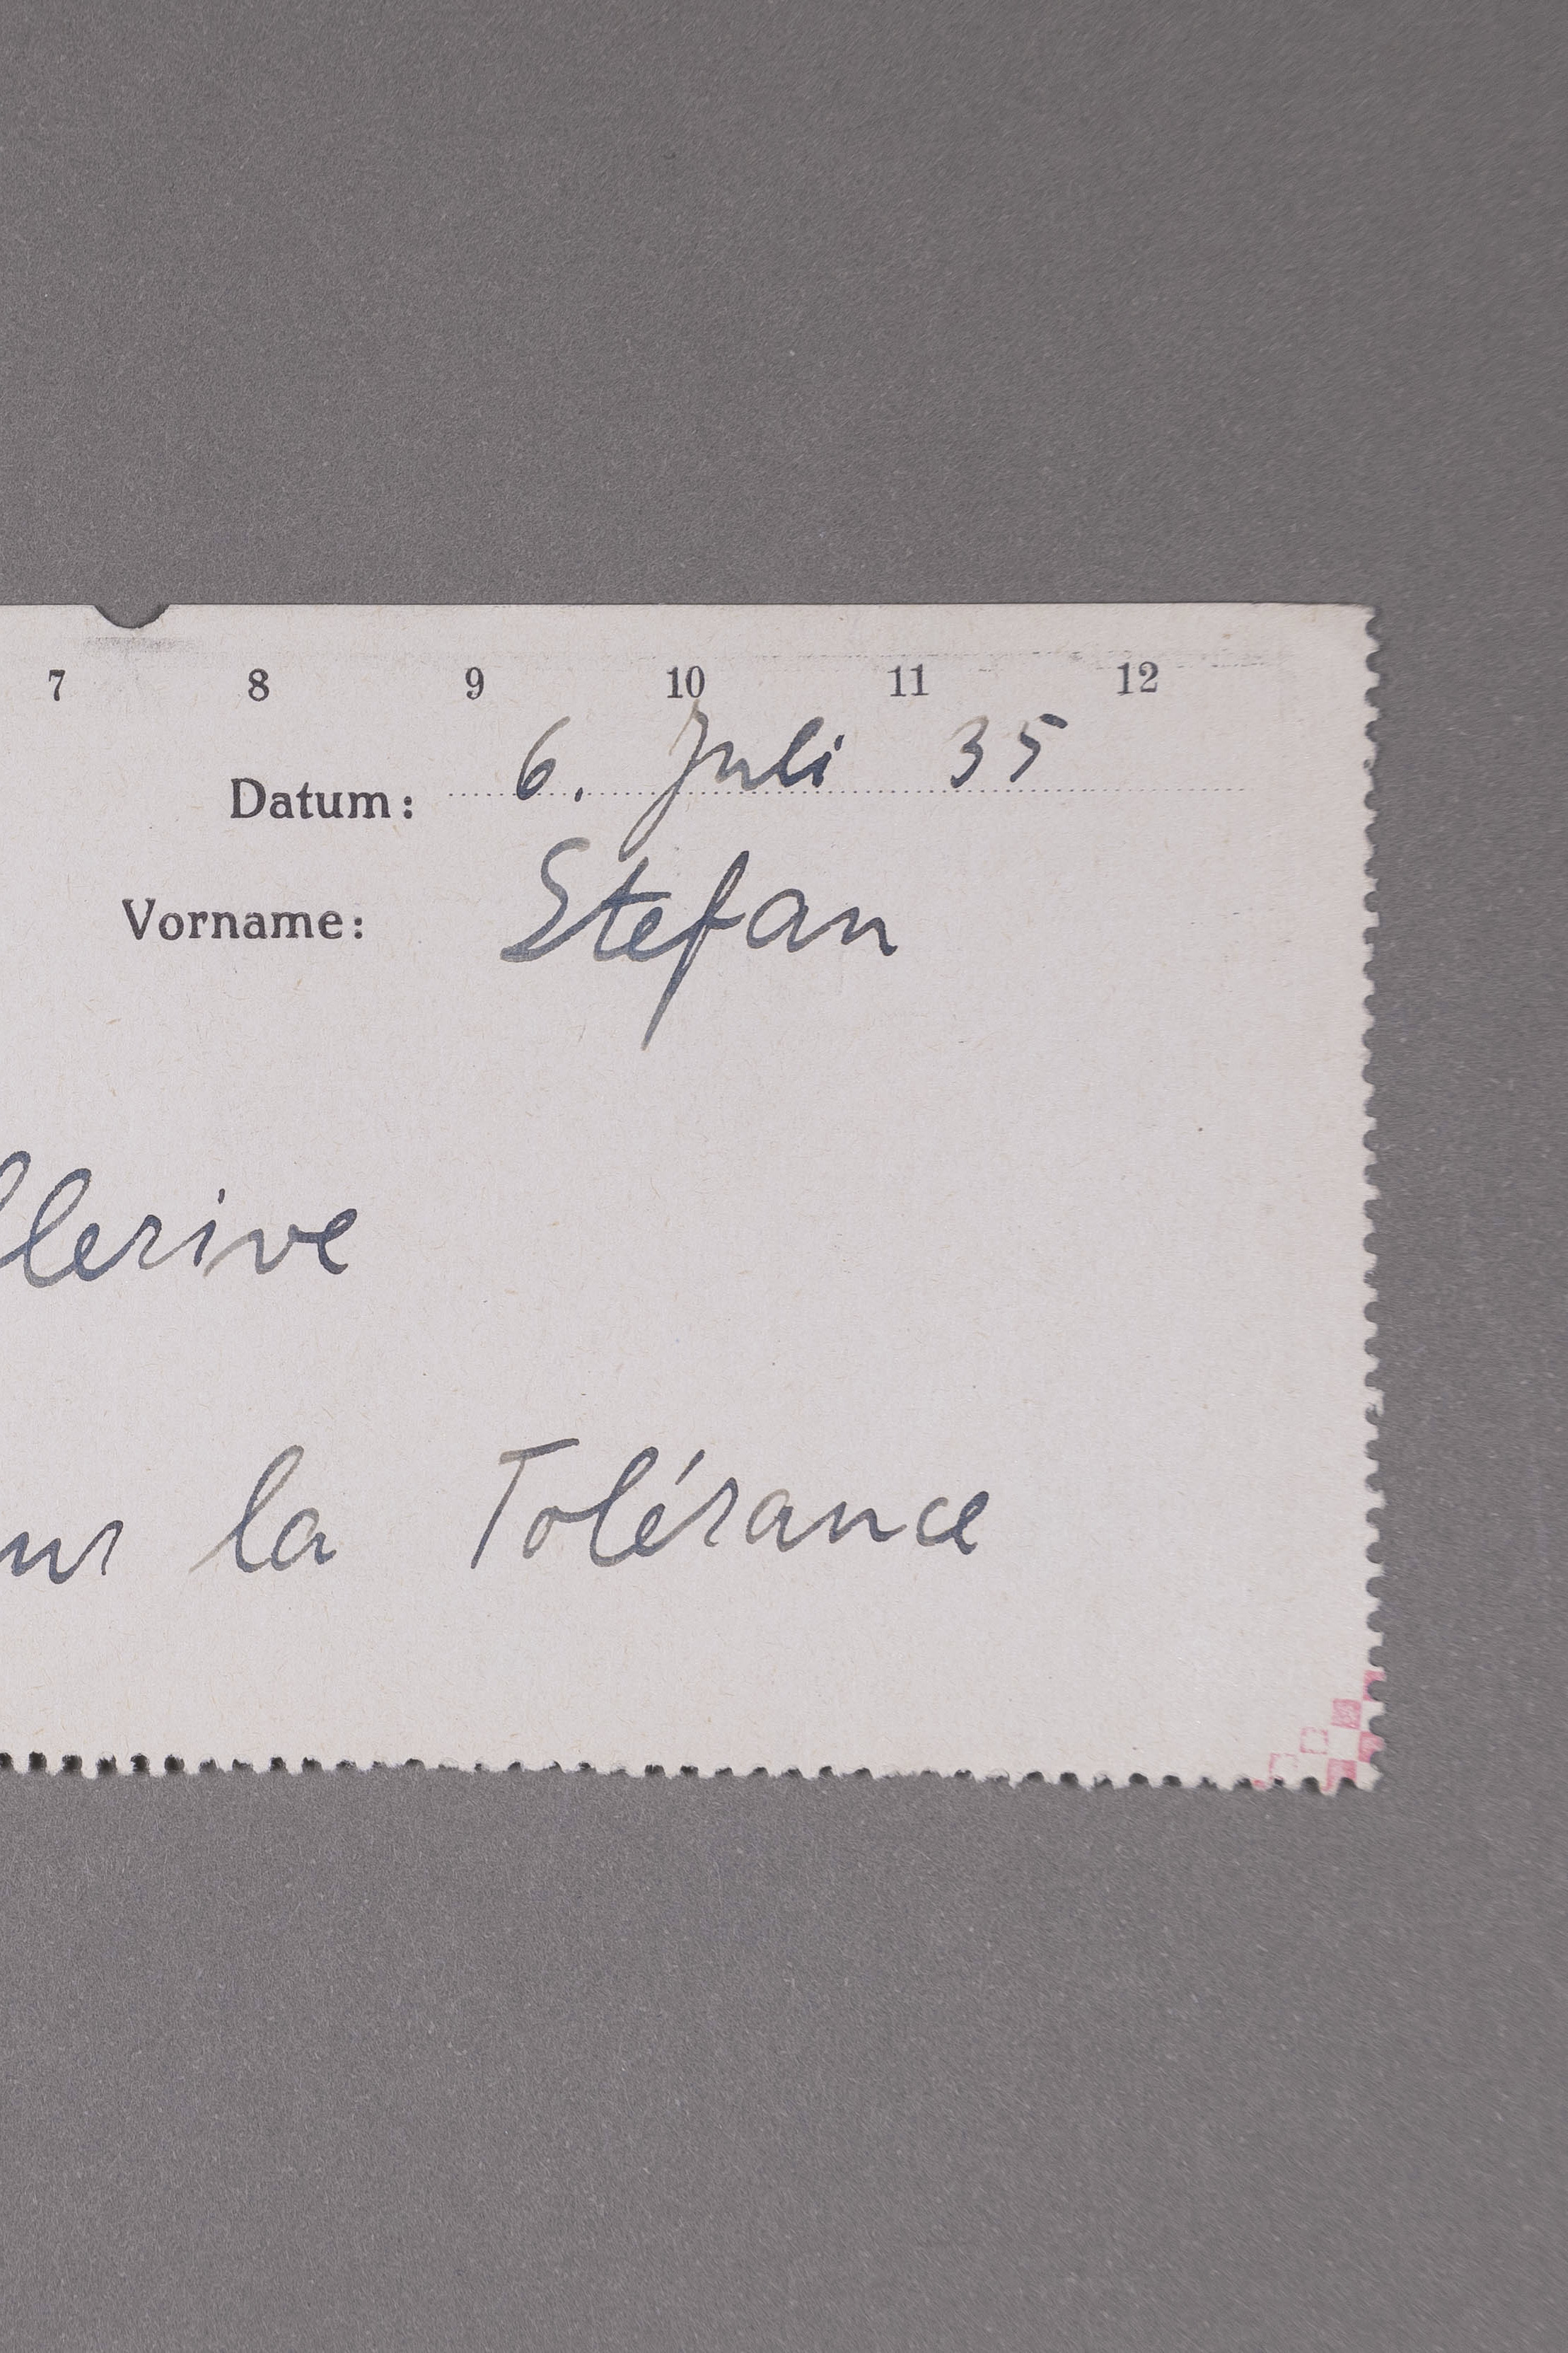 7 8 9 10 11 12
Datum: 6. Juli 35
Vorname: Stefan
llerive
ur la Tolérance